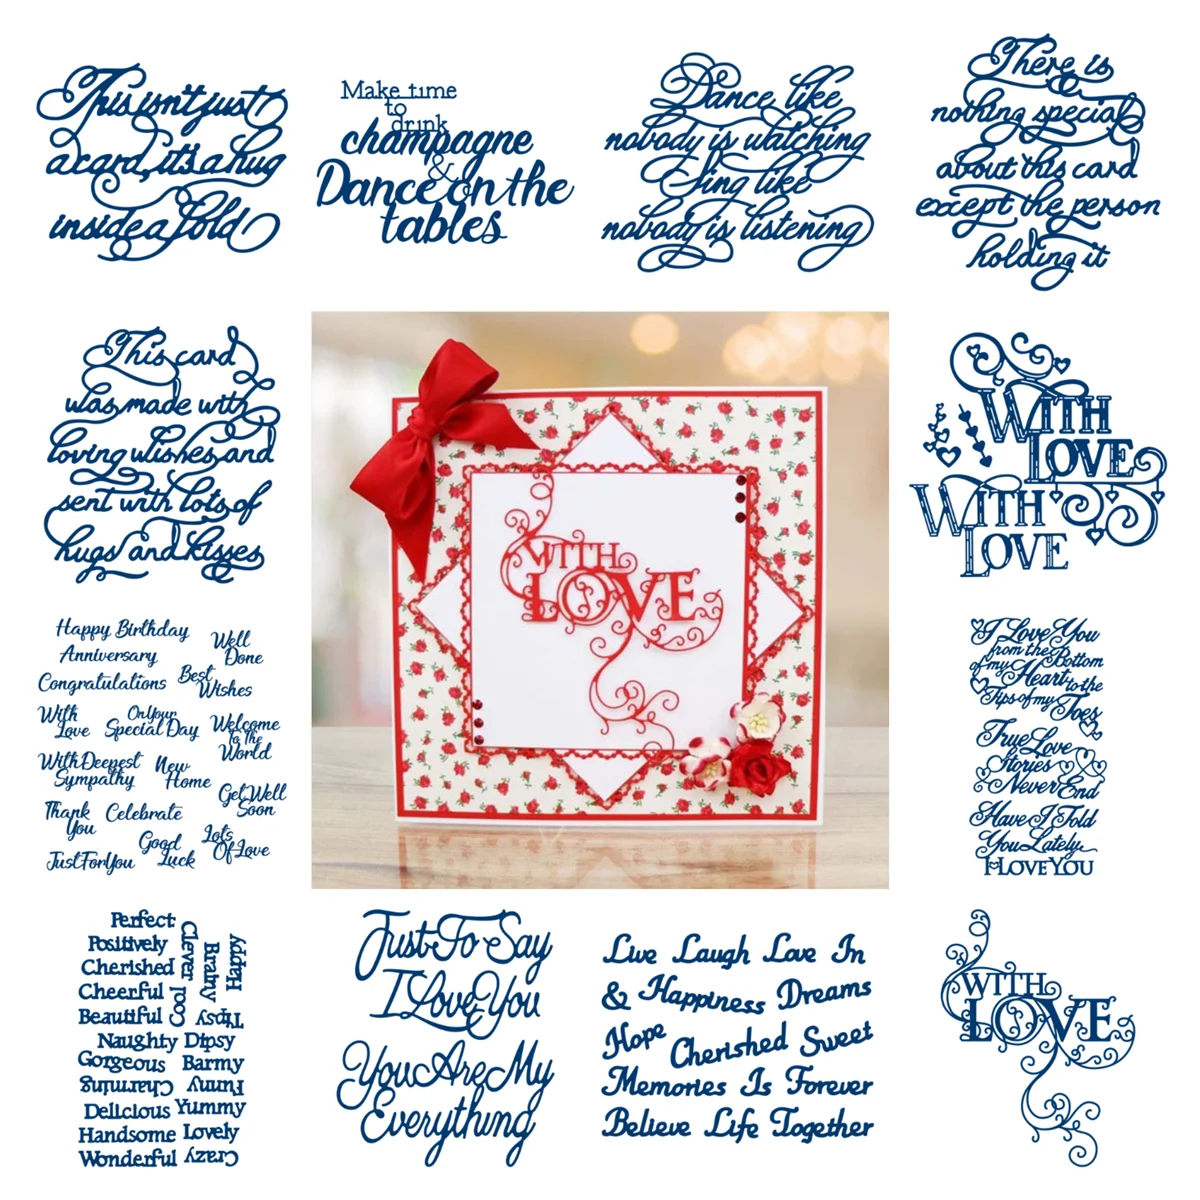 This isn't just
a card, it's a hug
inside a fold
Make time
to
drink
champagne
&
Dance on the
tables
Dance like
nobody is watching
Sing like
nobody is listening
There is
nothing special
about this card
except the person
holding it
This card
was made with
loving wishes and
sent with lots of
hugs and kisses
WITH
LOVE
WITH
LOVE
WITH
LOVE
Happy Birthday
Well
Done
Anniversary
Congratulations
Best
Wishes
With
Love
On Your
Special Day
Welcome
to The
World
With Deepest
Sympathy
New
Home
Get Well
Soon
Thank
You
Celebrate
Good
Luck
Lots
Of Love
Just For You
I Love You
from the Bottom
of my Heart to the
Tips of my Toes
True Love
Stories
Never End
Have I Told
You Lately
I LOVE YOU
Perfect
Positively
Cherished
Cheerful
Beautiful
Clever
Cool
Brainy
Happy
Tipsy
Naughty Dipsy
Gorgeous Barmy
Charming Funny
Delicious Yummy
Handsome Lovely
Wonderful Crazy
Just To Say
I Love You
You Are My
Everything
Live Laugh Love In
& Happiness Dreams
Hope Cherished Sweet
Memories Is Forever
Believe Life Together
WITH
LOVE